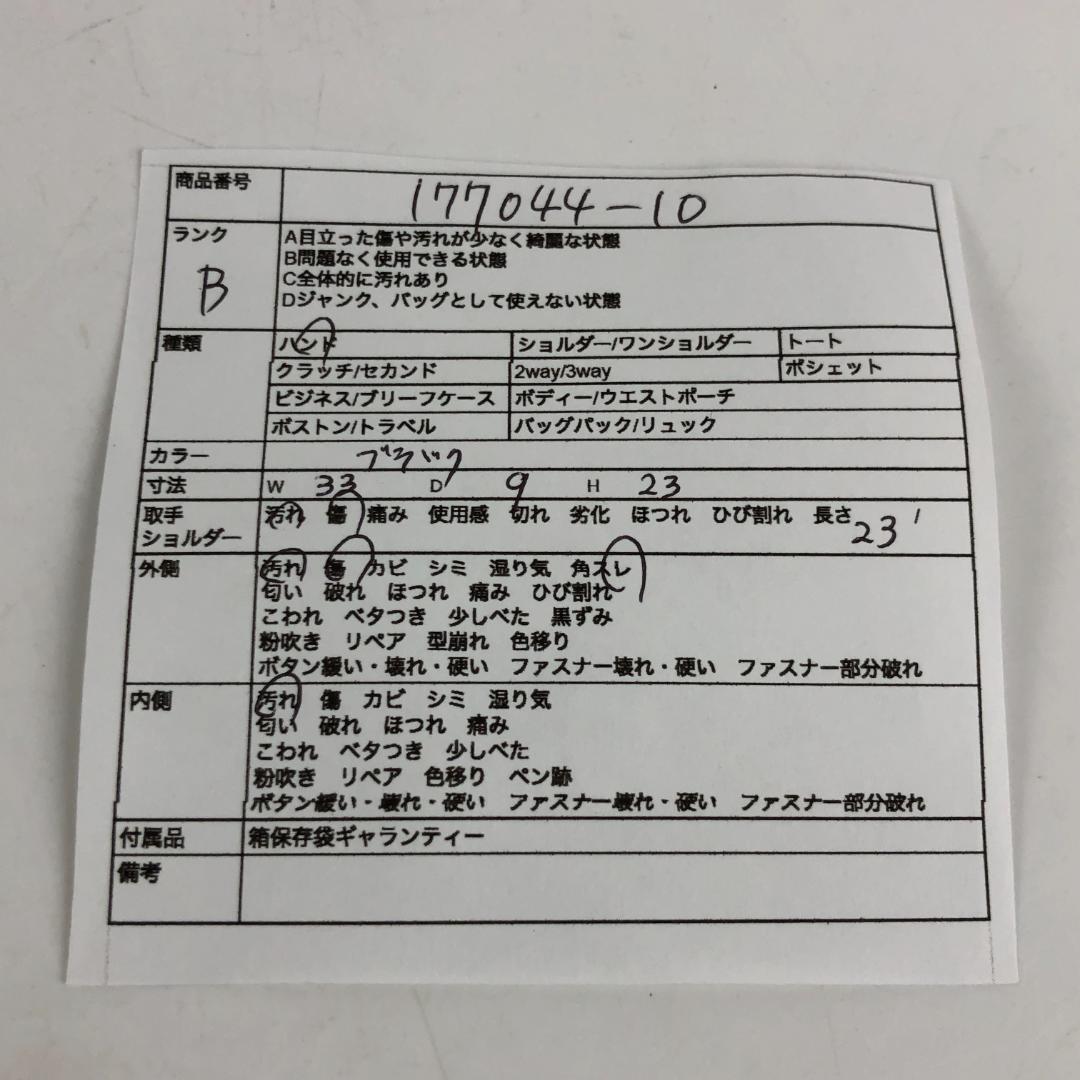 商品番号 177044-10
ランク B
A目立った傷や汚れが少なく綺麗な状態
B問題なく使用できる状態
C全体的に汚れあり
Dジャンク、バッグとして使えない状態
種類 ハンド ショルダー/ワンショルダー トート
クラッチ/セカンド 2way/3way ポシェット
ビジネス/ブリーフケース ボディー/ウエストポーチ
ボストン/トラベル バッグパック/リュック
カラー ブラック
寸法 W 33 D 9 H 23
取手 汚れ 傷 痛み 使用感 切れ 劣化 ほつれ ひび割れ 長さ 23 /
ショルダー
外側 汚れ 傷 カビ シミ 湿り気 角スレ
匂い 破れ ほつれ 痛み ひび割れ
こわれ ベタつき 少しべた 黒ずみ
粉吹き リペア 型崩れ 色移り
ボタン緩い・壊れ・硬い ファスナー壊れ・硬い ファスナー部分破れ
内側 汚れ 傷 カビ シミ 湿り気
匂い 破れ ほつれ 痛み
こわれ ベタつき 少しべた
粉吹き リペア 色移り ペン跡
ボタン緩い・壊れ・硬い ファスナー壊れ・硬い ファスナー部分破れ
付属品 箱保存袋ギャランティー
備考